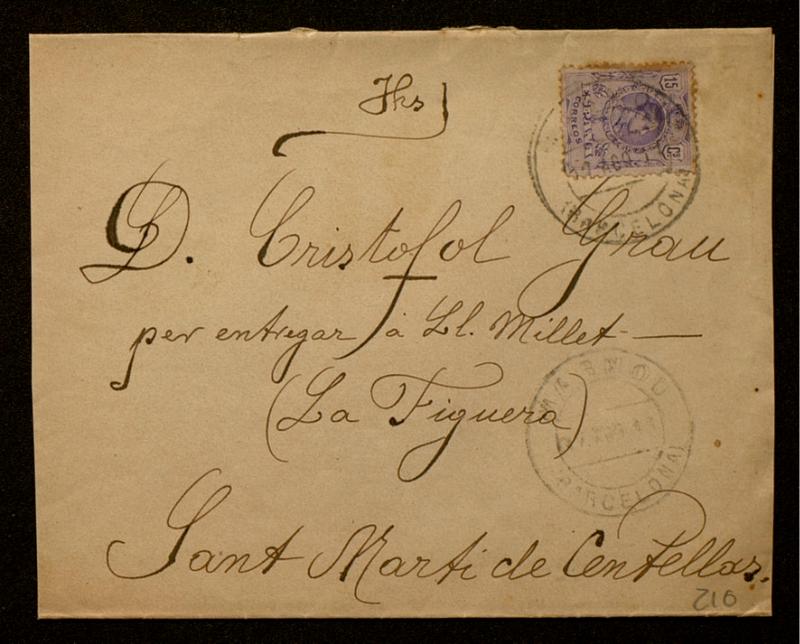 Jhs
15
CORREOS
Cs
(BARCELONA)
D. Cristofol Grau
per entregar á Ll. Millet —
(La Figuera)
MASNOU
(BARCELONA)
Sant Marti de Centellas.
210